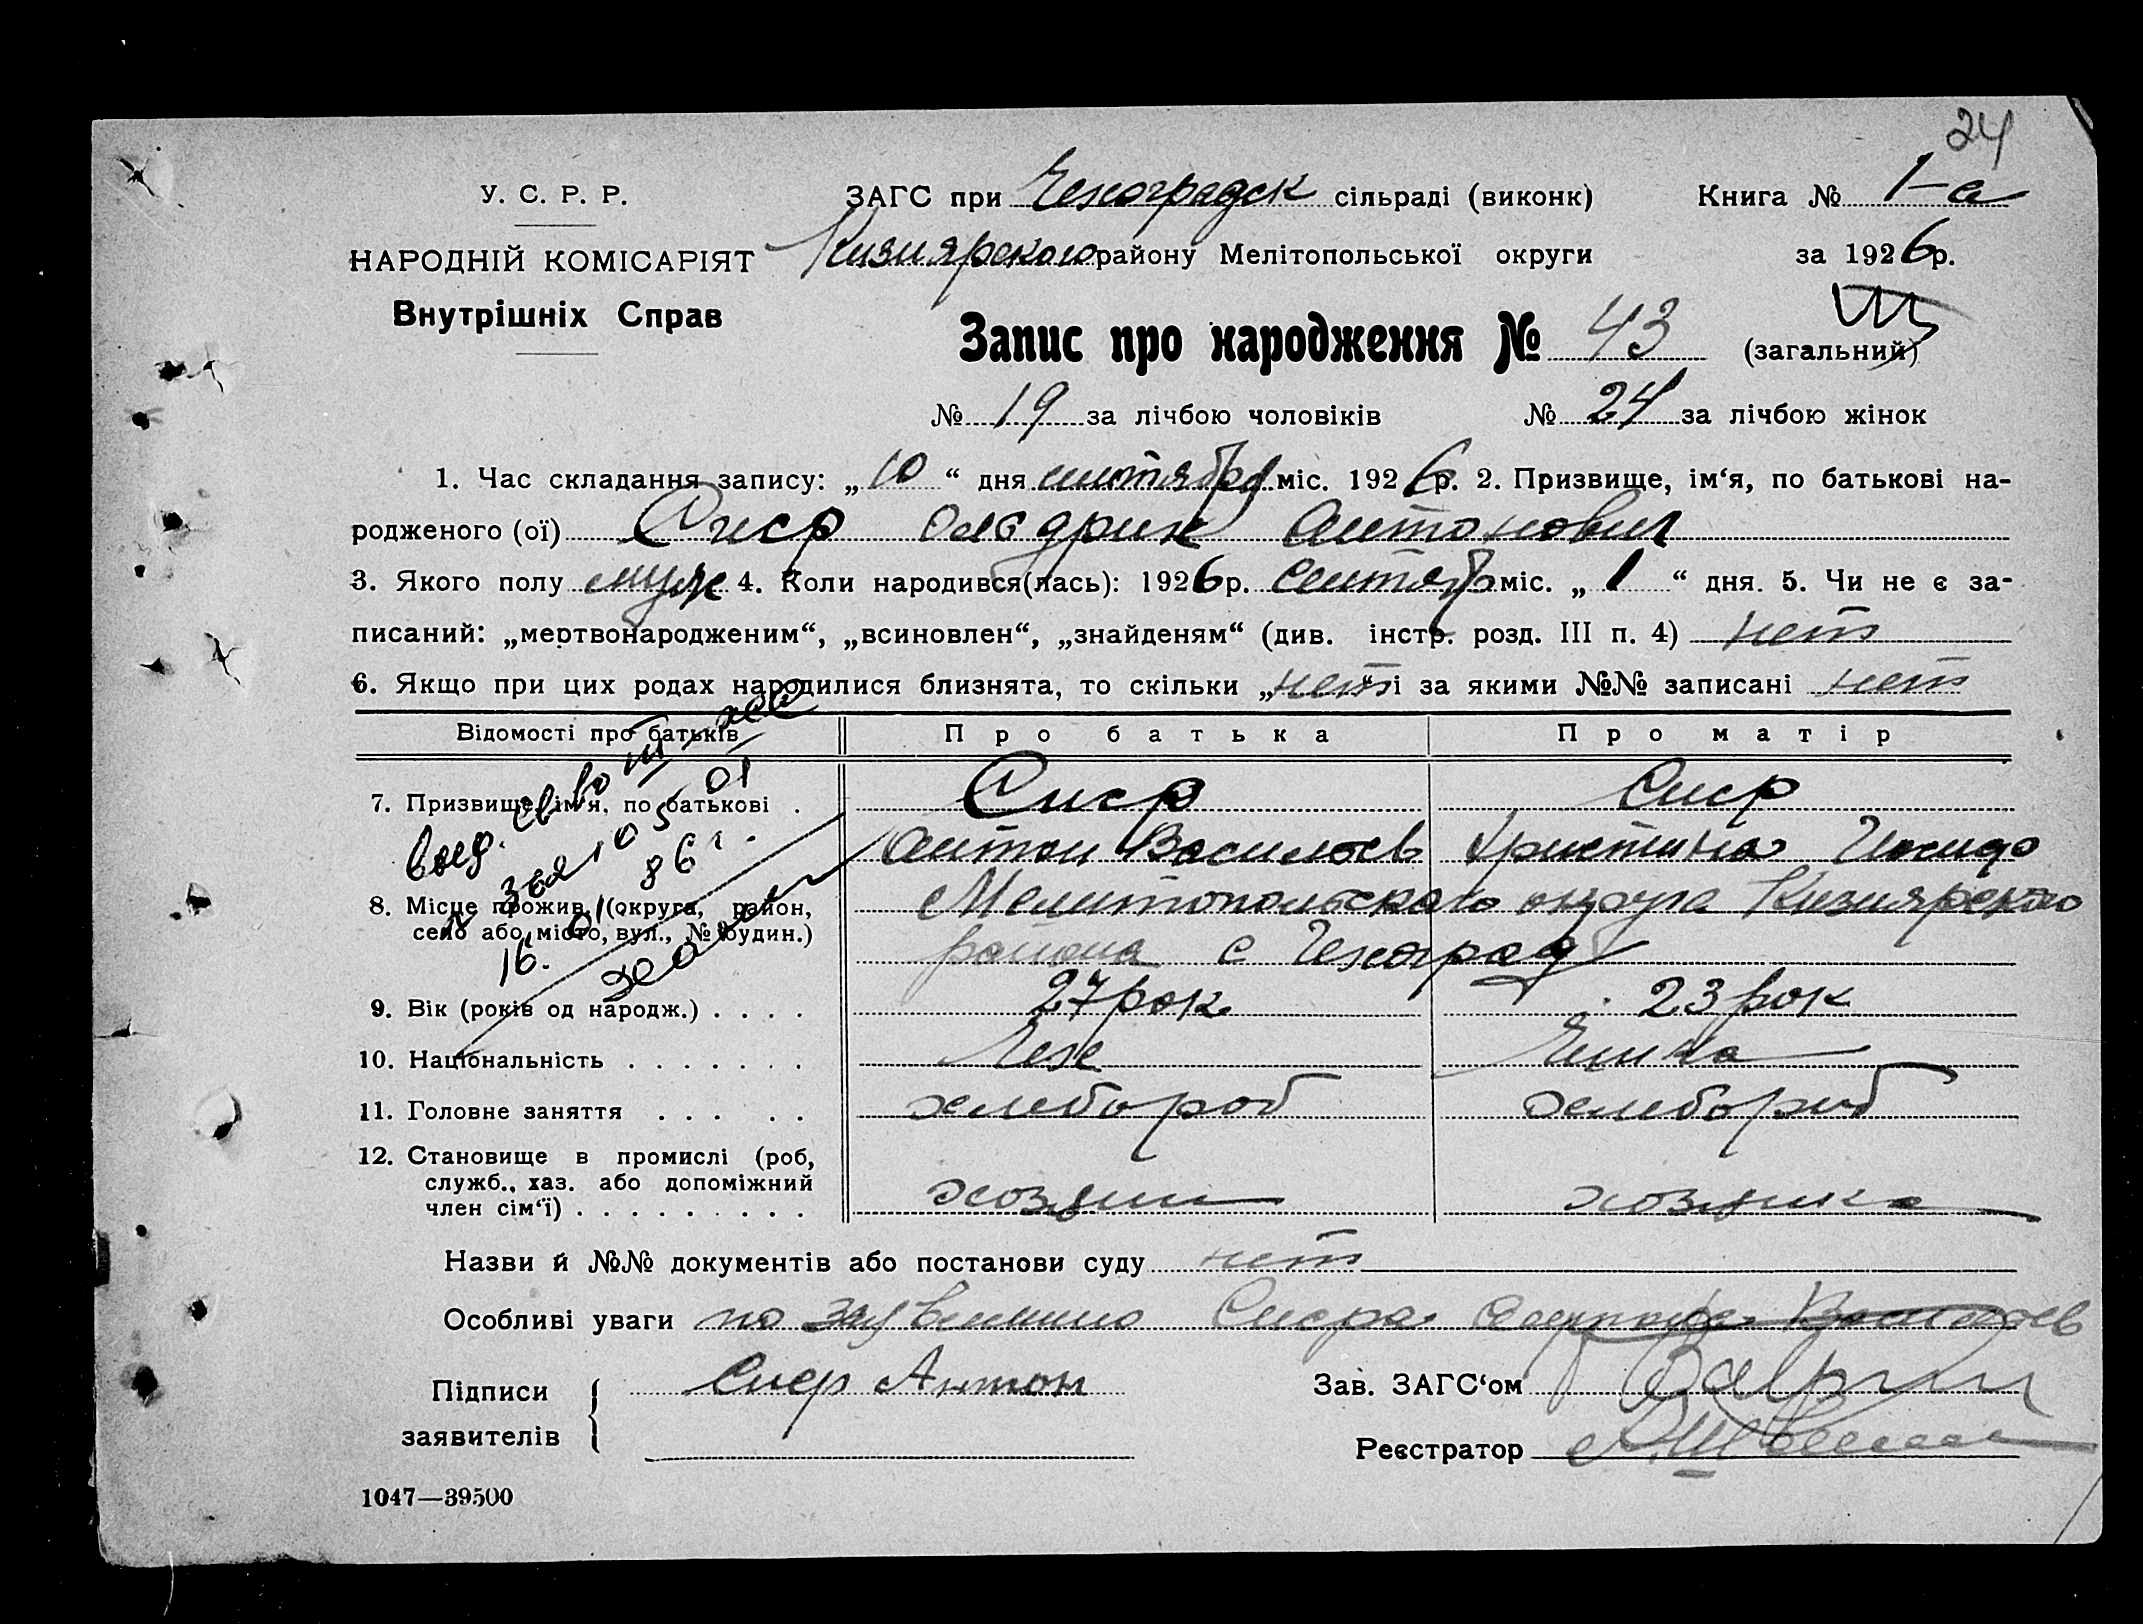 24
У. С. Р. Р. ЗАГС при Чехоградск сільраді (виконк) Книга № 1-а
НАРОДНІЙ КОМІСАРІЯТ Кизиярского району Мелітопольської округи за 1926р.
Внутрішніх Справ
Запис про народження № 43 (загальний)
№ 19 за лічбою чоловіків № 24 за лічбою жінок
1. Час складання запису: „10“ дня сентября міс. 1926р. 2. Призвище, ім‘я, по батькові на-
родженого (ої) Антонович
3. Якого полу муж 4. Коли народився(лась): 1926р. сентяб міс. „1“ дня. 5. Чи не є за-
писаний: „мертвонародженим“, „всиновлен“, „знайденям“ (див. інстр. розд. III п. 4) нет
6. Якщо при цих родах народилися близнята, то скільки „нет“ і за якими №№ записані нет
Відомості про батьків Про батька Про матір
7. Призвище, ім‘я, по батькові . Сиер Сиер
Антон Васильев Христина
8. Місце прожив. (округа, район, Мелитопольского округа Кизиярского
село або місто, вул., № будин.) района с Чехоград
9. Вік (років од народж.) . . . . 27 рок 23 рок
10. Національність . . . . . . . Чех Чешка
11. Головне заняття . . . . . хлебороб хлебороб
12. Становище в промислі (роб,
служб., хаз. або допоміжний
член сім‘ї) . . . . . . . . . хозяин хозяика
Назви й №№ документів або постанови суду нет
Особливі уваги по заявлению Сиера Васильев
Підписи Сиер Антон Зав. ЗАГС‘ом
заявителів Реєстратор
1047—39500